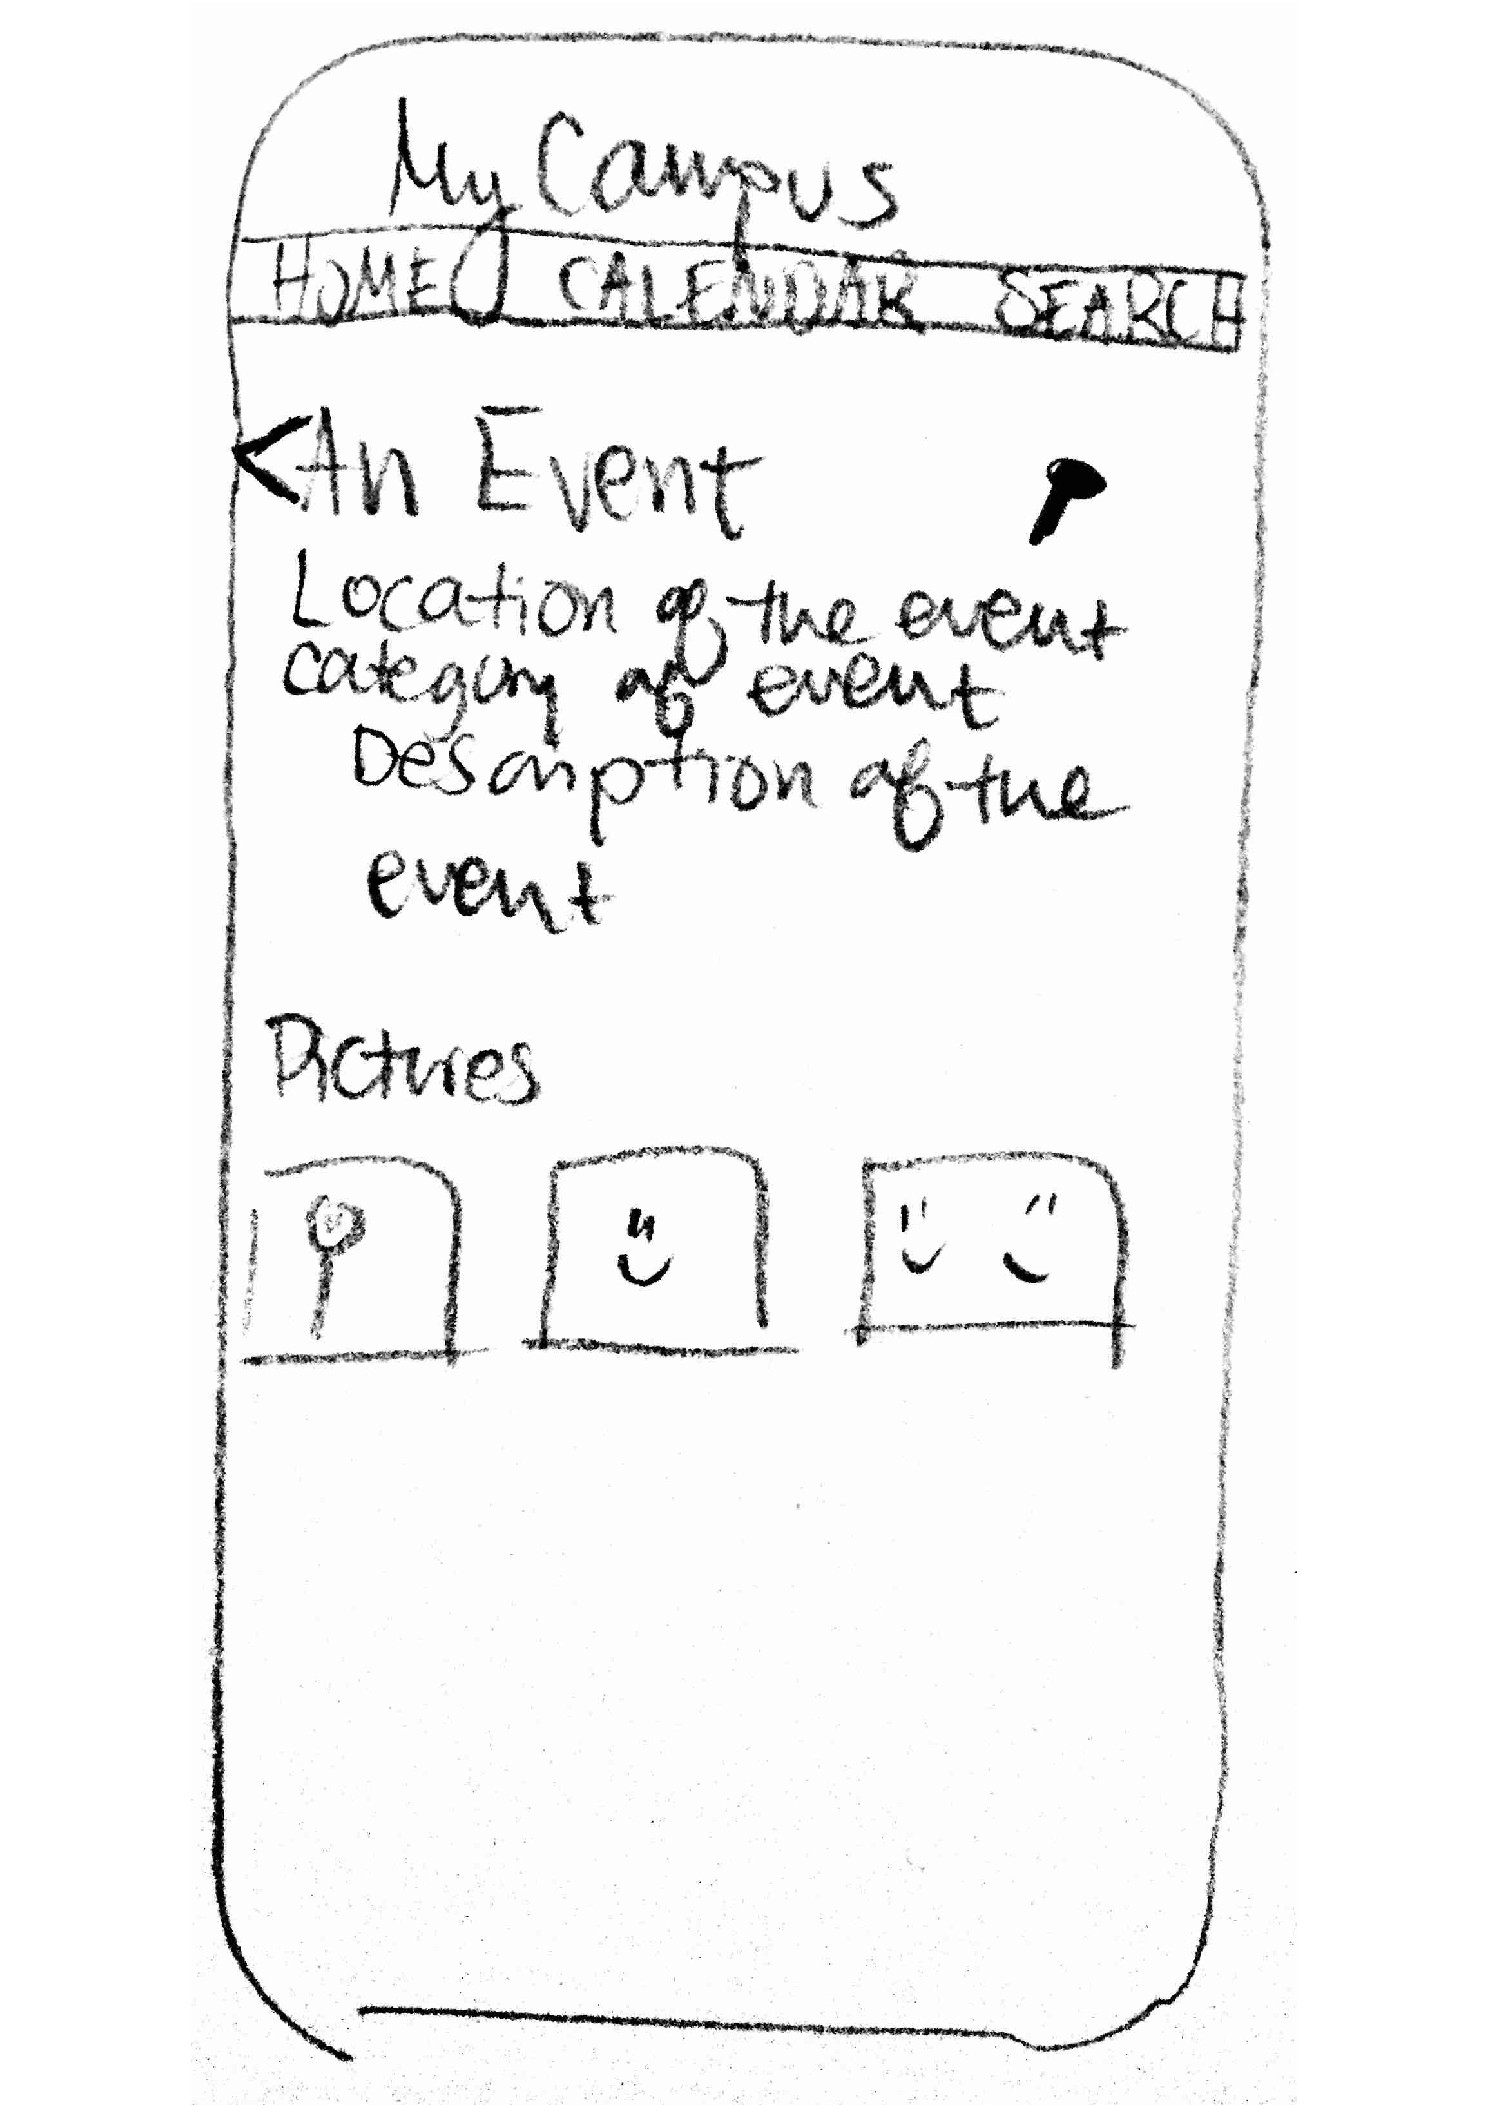 My Campus
HOME CALENDAR SEARCH
<An Event
Location of the event
category of event
Description of the
event
Pictures